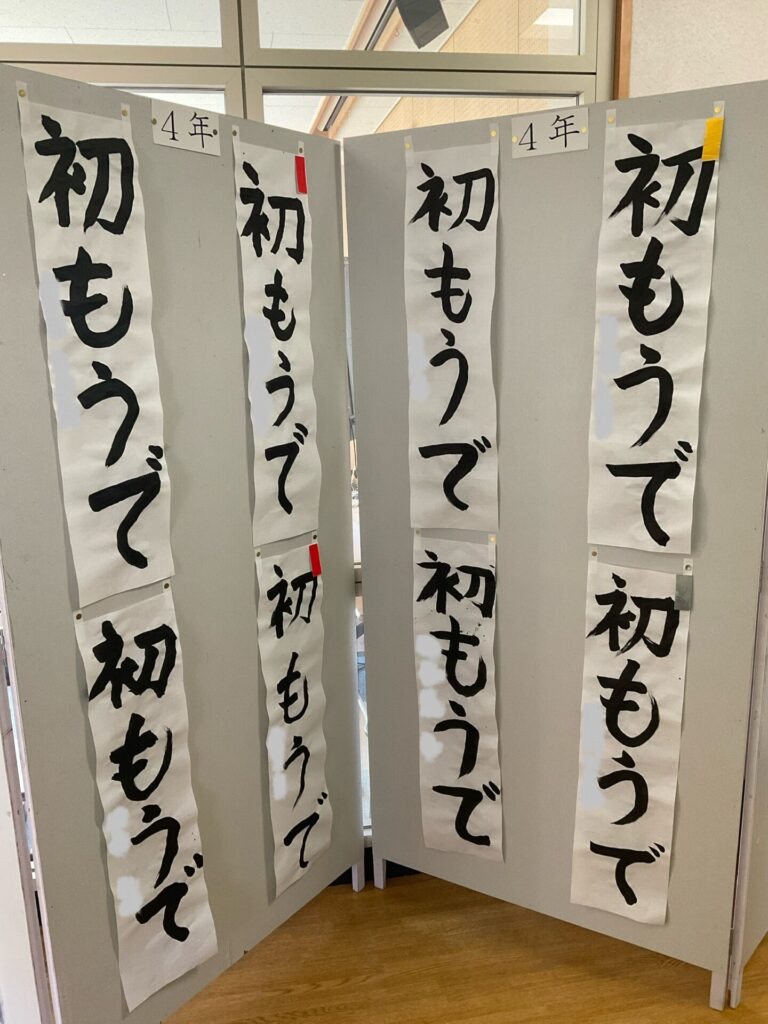 4年
初もうで
初もうで
初もうで
初もうで
4年
初もうで
初もうで
初もうで
初もうで